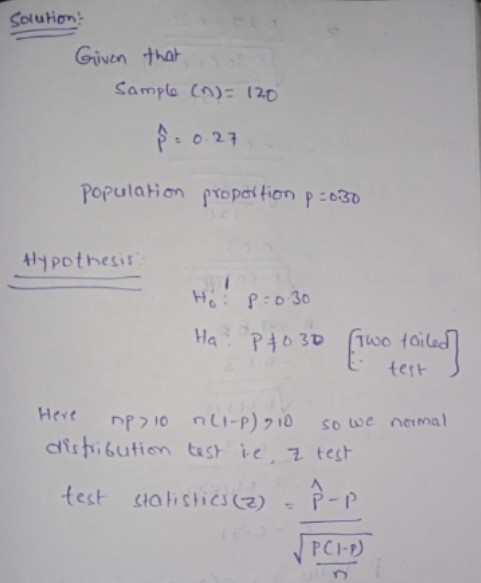 Solution:
Given that
Sample (n) = 120
p̂ = 0.27
population proportion p = 0.30
Hypothesis:
H₀: p = 0.30
Ha: p ≠ 0.30 [Two tailed
test]
Here np > 10 n(1-p) > 10 so we normal
distribution test i.e, z test
test statistics (z) = p̂ - p
√ P(1-p)
n